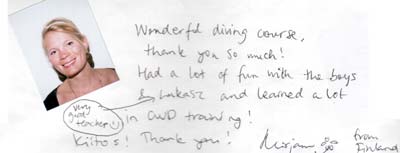 Wonderful diving course,
thank you so much!
Had a lot of fun with the boys
& Lukasz and learned a lot
very
good
teacher :)
in OWD training!
Kiitos! Thank you!
Mirjam
from
Finland